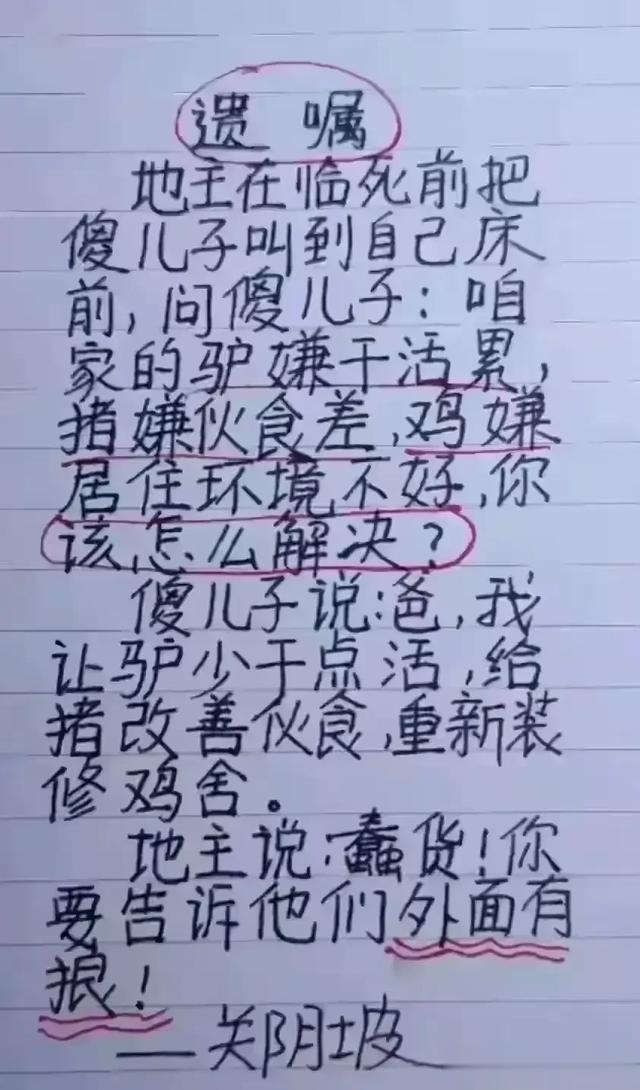 遗 嘱
地主在临死前把
傻儿子叫到自己床
前,问傻儿子:咱
家的驴嫌干活累,
猪嫌伙食差,鸡嫌
居住环境不好,你
该怎么解决?
傻儿子说:爸,我
让驴少干点活,给
猪改善伙食,重新装
修鸡舍。
地主说:蠢货!你
要告诉他们外面有
狼!
——郑阴坡